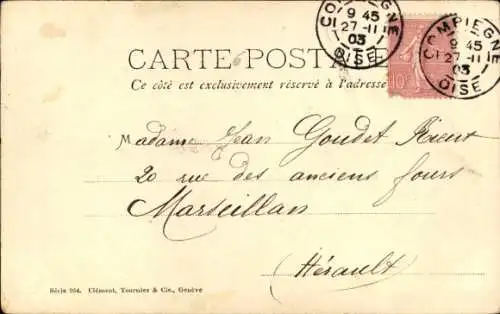 COMPIEGNE
9 45
27 - 11
03
OISE
COMPIEGNE
9 45
27 - 11
03
OISE
CARTE POSTALE
10
Ce côté est exclusivement réservé à l'adresse
Madame Jean Goudet
20 rue des anciens fours
Marseillan
(Hérault)
Série 204. Clément, Tournier & Cie., Genève